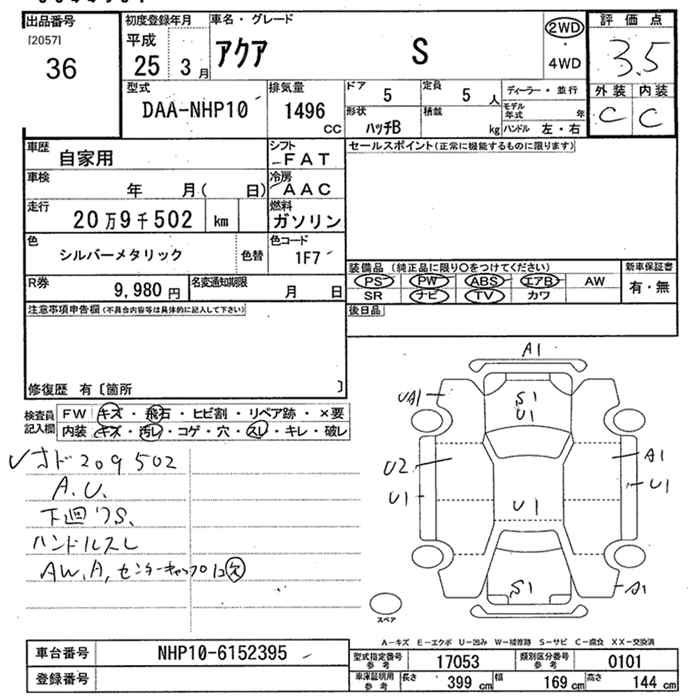 出品番号
[2057]
36
初度登録年月
平成
25 3月
車名・グレード
アクア S
2WD
・
4WD
評価点
3.5
外装 内装
C C
型式
DAA-NHP10
排気量
1496
CC
ドア
5
定員
5 人
ディーラー・並行
形状
ハッチB
積載
kg
モデル
年式 年
ハンドル 左・右
車歴
自家用
シフト
FAT
車検
年 月( 日)
冷房
AAC
走行
20万9千502 km
燃料
ガソリン
色
シルバーメタリック
色替
色コード
1F7
R券
9,980 円
名変通知期限
月 日
セールスポイント(正常に機能するものに限ります)
装備品 (純正品に限り○をつけてください)
PS PW ABS エアB AW
SR ナビ TV カワ
新車保証書
有・無
後日品
注意事項申告欄(不具合内容等は具体的に記入して下さい)
修復歴 有〔箇所 〕
検査員
記入欄
FW キズ・飛石・ヒビ割・リペア跡・×要
内装 キズ・汚レ・コゲ・穴・スレ・キレ・破レ
レオド209502
A.U.
下回りS.
ハンドルスレ
AW,A,センターキャップ1コ欠
A1
UA1
S1
U1
U2
A1
U1
U1
U1
S1
A1
スペア
A-キズ E-エクボ U-凹み W-補修跡 S-サビ C-腐食 XX-交換済
車台番号
NHP10-6152395
登録番号
型式指定番号
参考
17053
類別区分番号
参考
0101
車庫証明用
参考
長さ 399 cm
幅 169 cm
高さ 144 cm